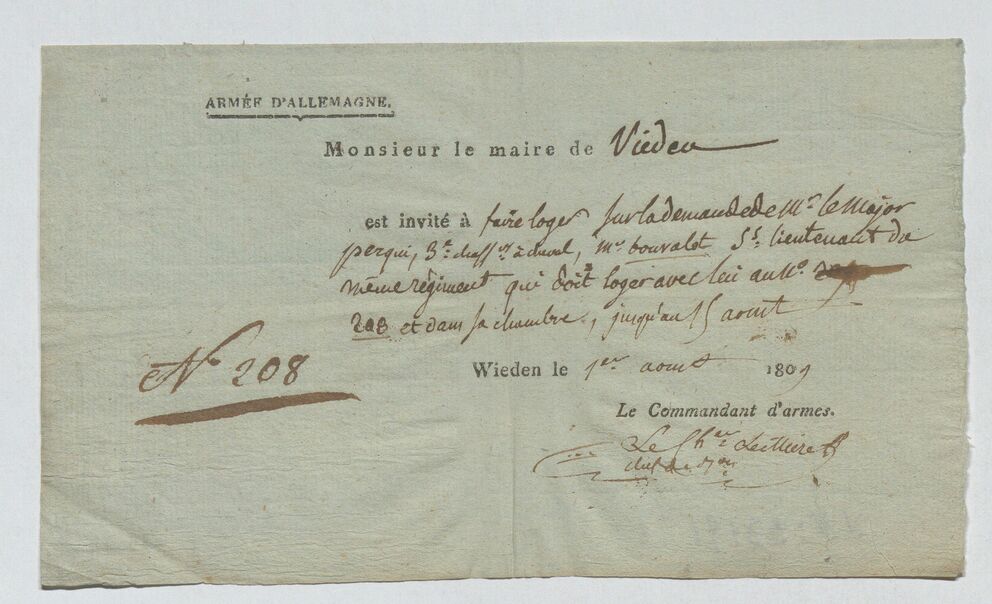 ARMÉE D'ALLEMAGNE.
Monsieur le maire de Vieden
est invité à faire loger sur la demande de Mr. le Major
perqui, 3e. chassrs. à cheval, Mr. bouvalot Ss. lieutenant du
même régiment qui doit loger avec lui au No.
208 et dans sa chambre, jusqu'au 15 aoust
No 208
Wieden le 1er aoust 1809
Le Commandant d'armes.
Le Cher